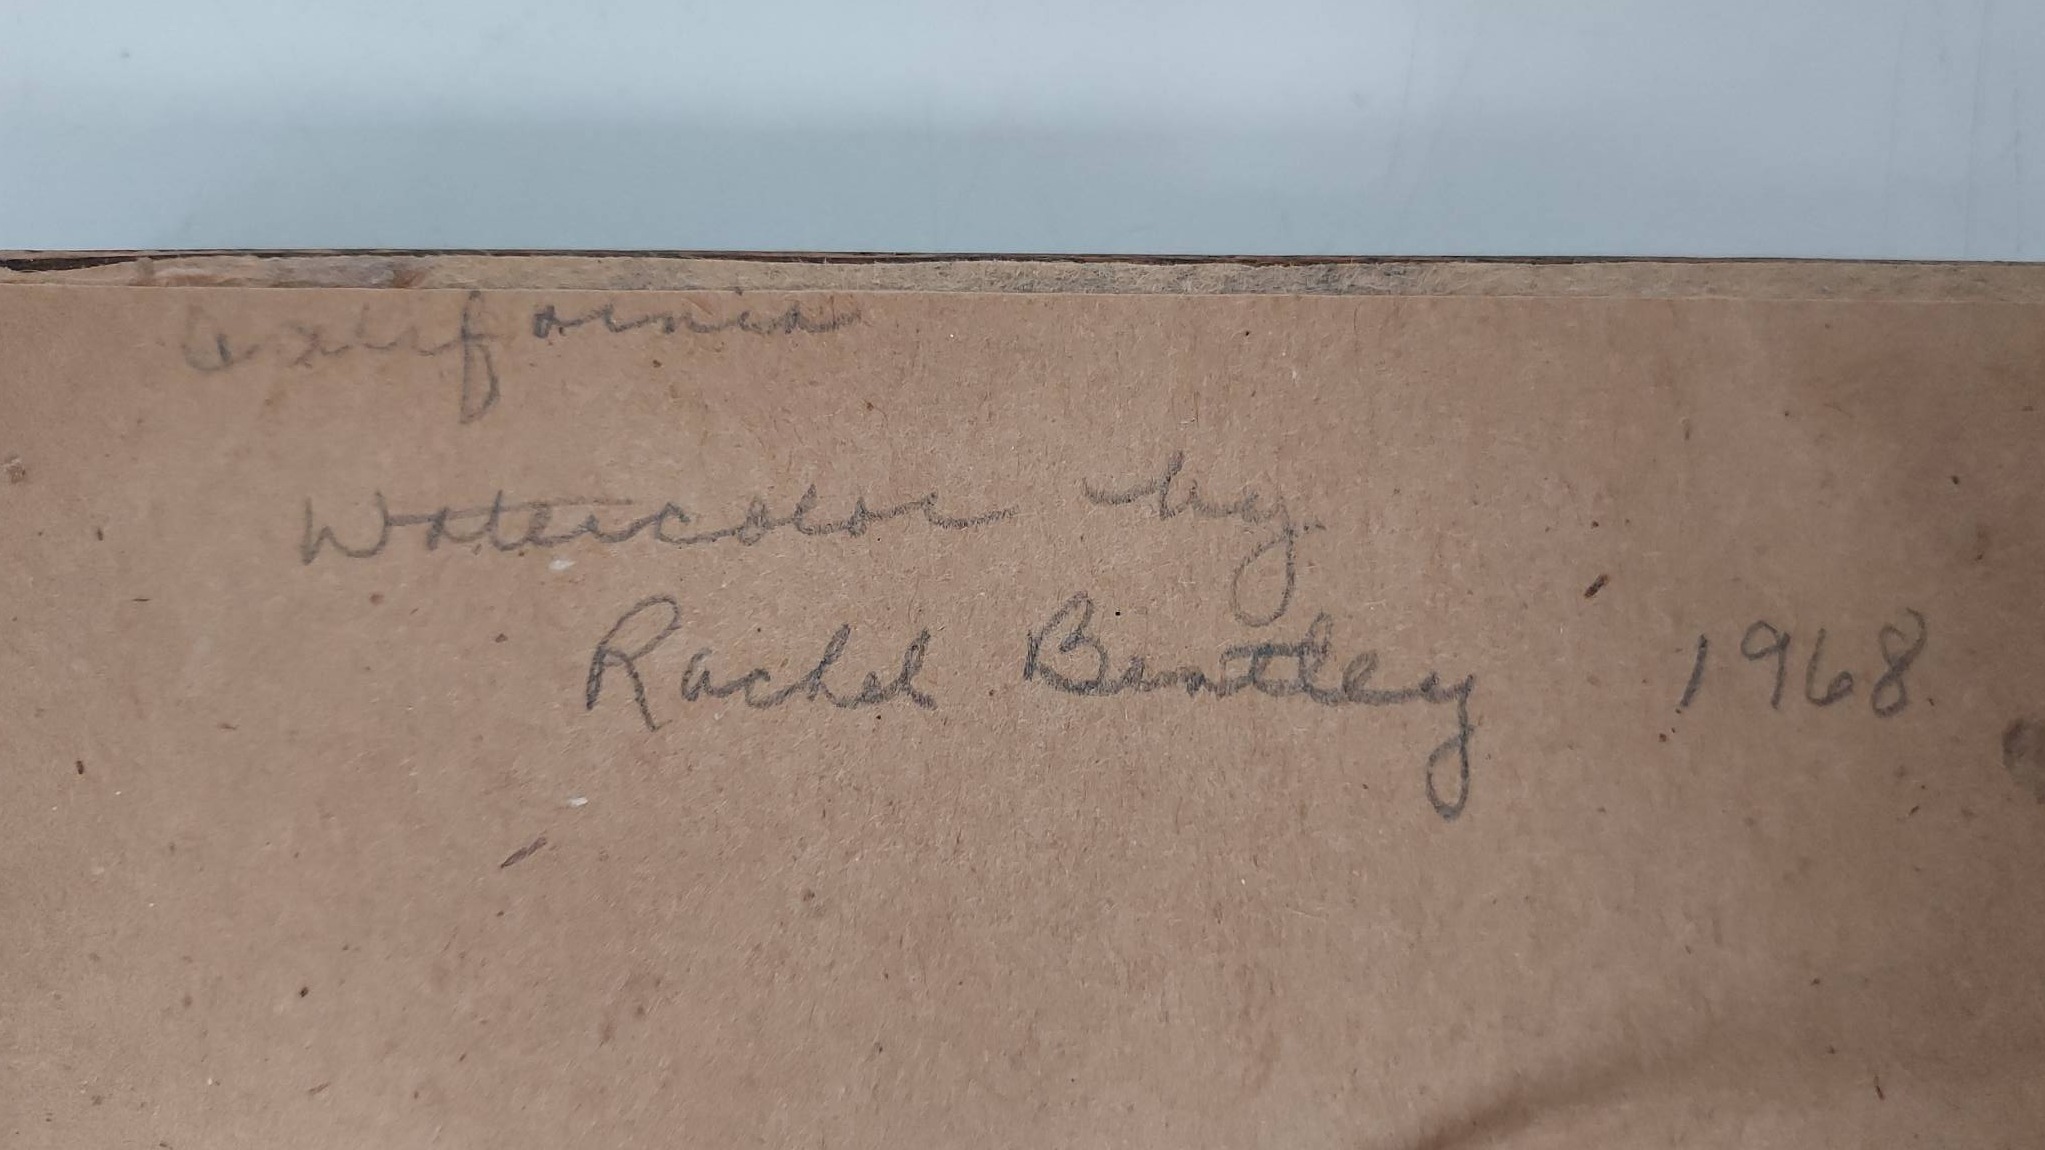 California
Watercolor by
Rachel Bentley 1968